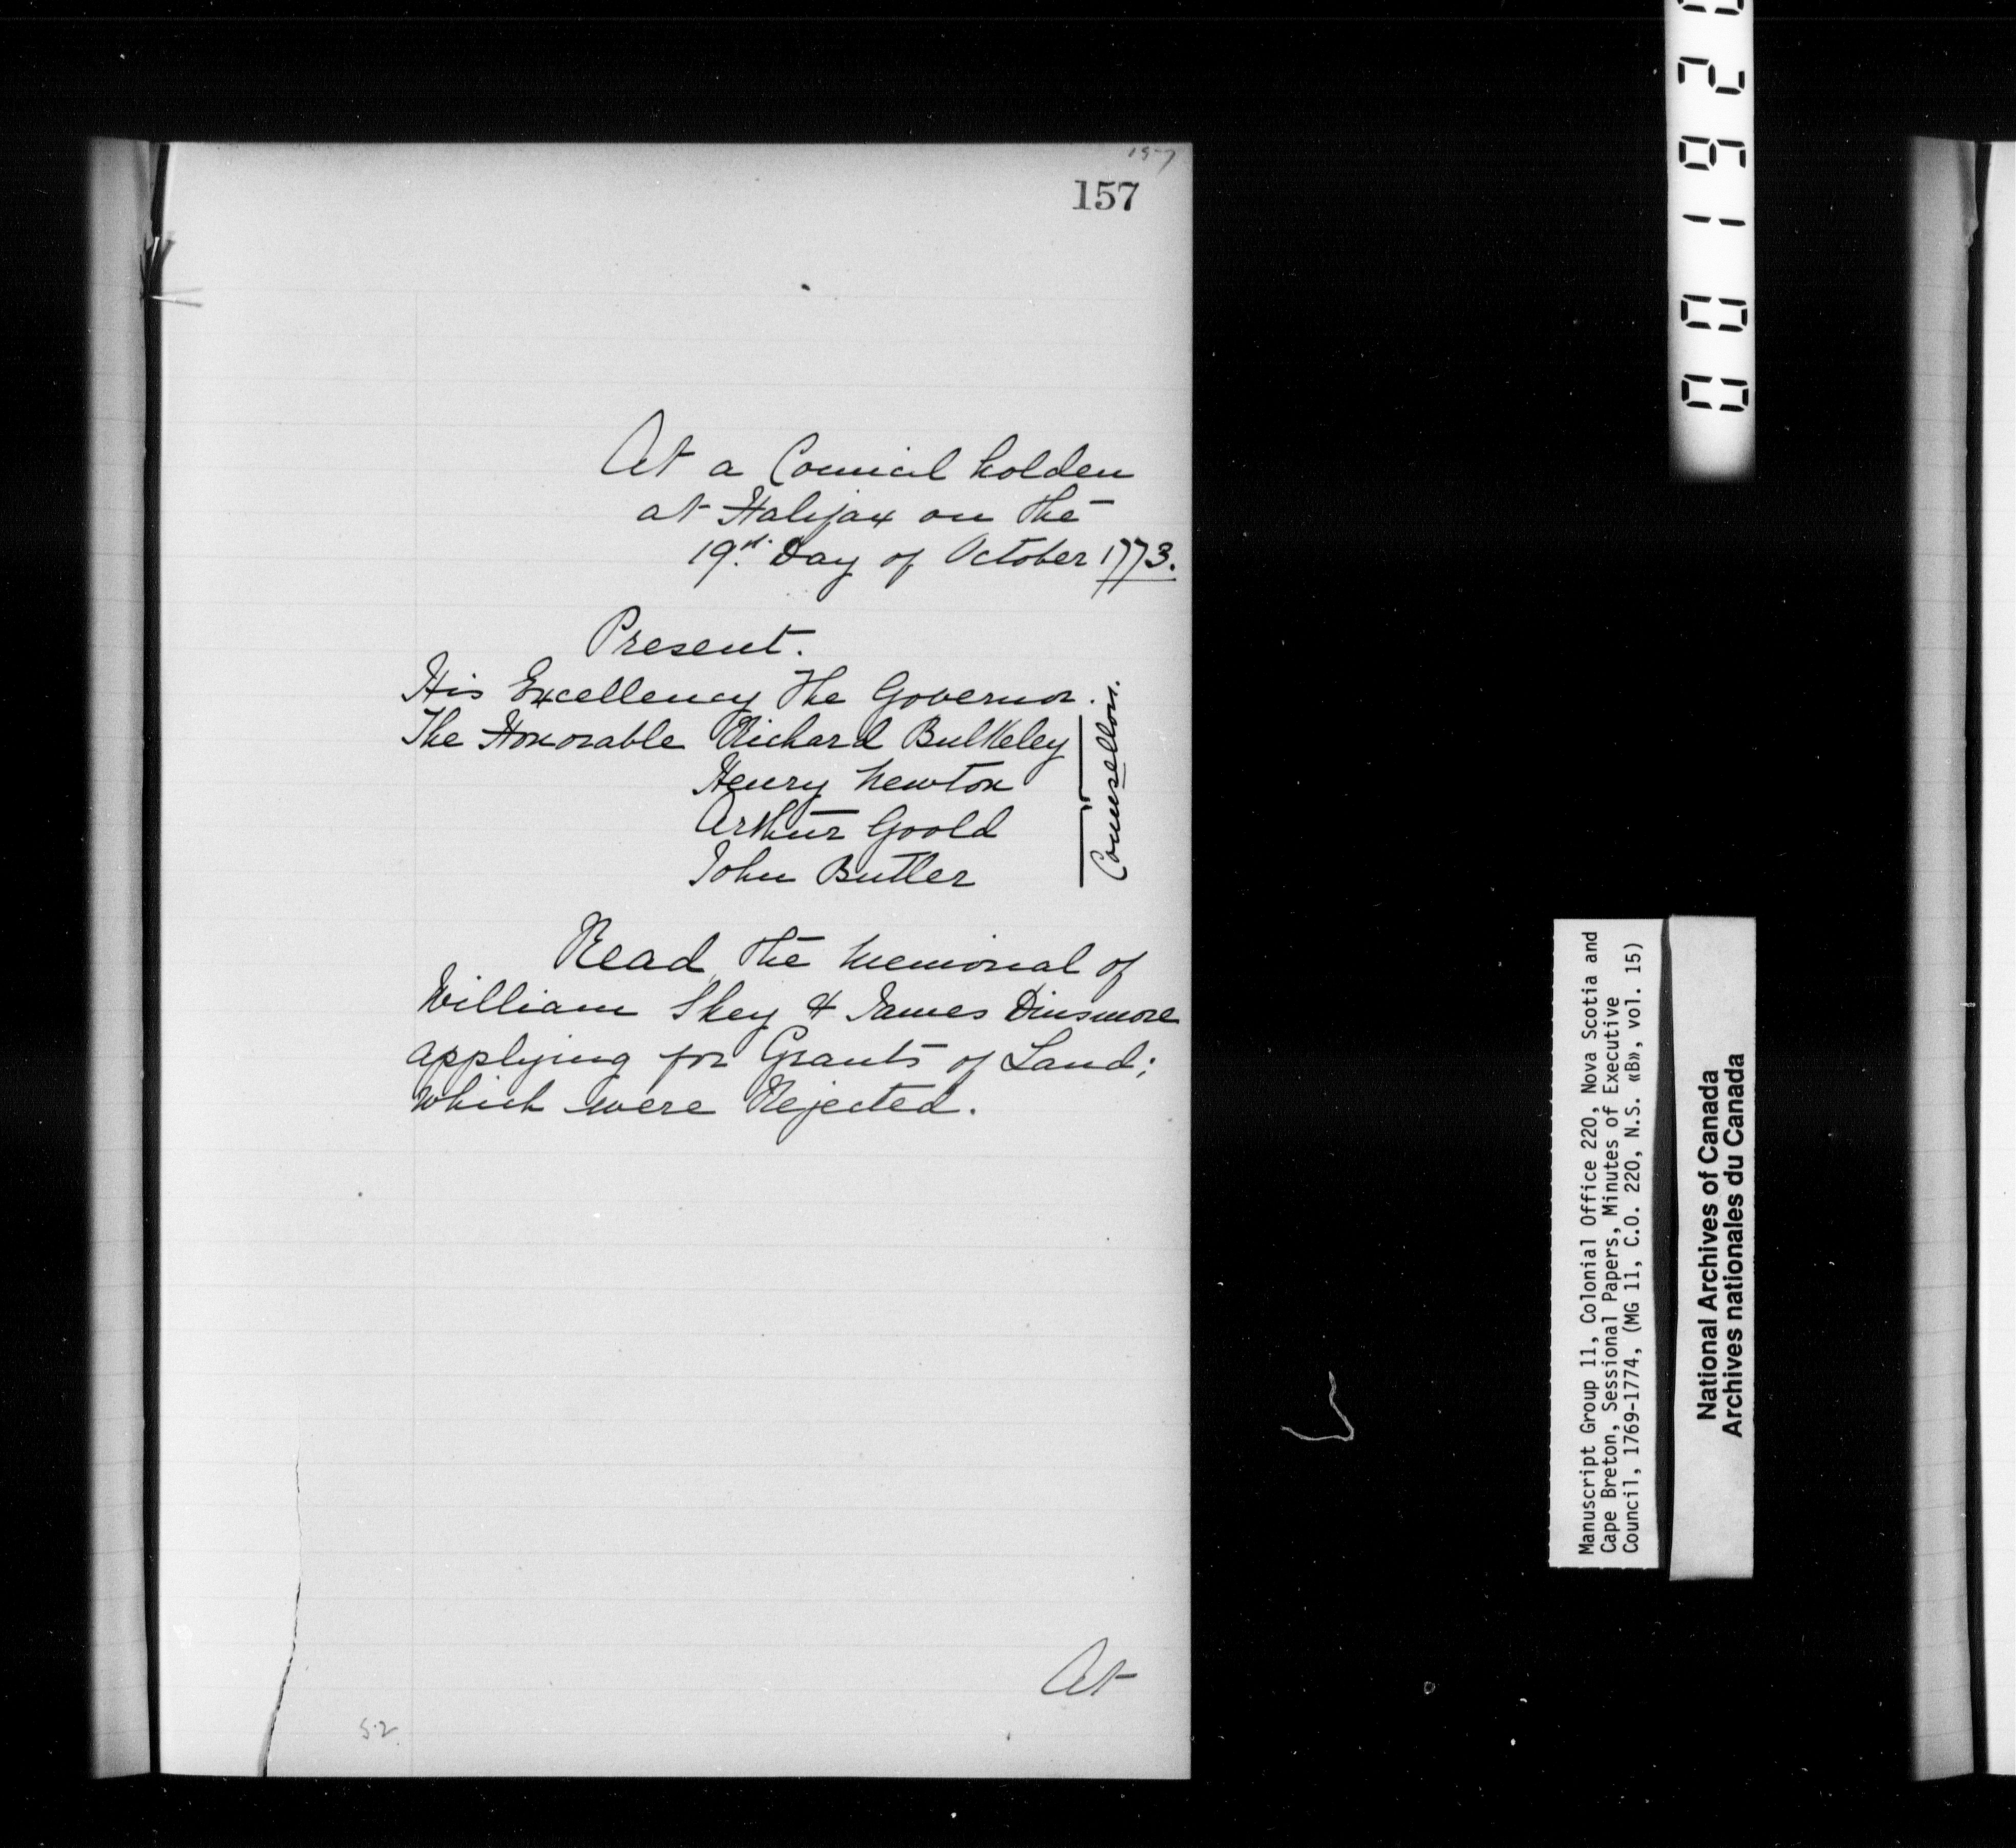 157
157
At a Council holden
at Halifax on the
19th. Day of October 1773.
Present.
His Excellency The Governor.
The Honorable Richard Bulkeley
Henry Newton
Arthur Goold
John Butler
Counsellors.
Read the Memorial of
William Shey & James Dinsmore
applying for Grants of Land;
which were Rejected.
At
52.
Manuscript Group 11, Colonial Office 220, Nova Scotia and
Cape Breton, Sessional Papers, Minutes of Executive
Council, 1769-1774, (MG 11, C.O. 220, N.S. «B», vol. 15)
National Archives of Canada
Archives nationales du Canada